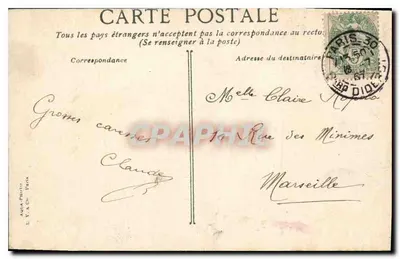 CARTE POSTALE
Tous les pays étrangers n'acceptent pas la correspondance au recto
(Se renseigner à la poste)
Correspondance
Adresse du destinataire
PARIS. 30
Melle Claire
Rue des Minimes
Marseille
Grosses caresses
Claude
CARTE POSTALE
L. V. & Cie Paris